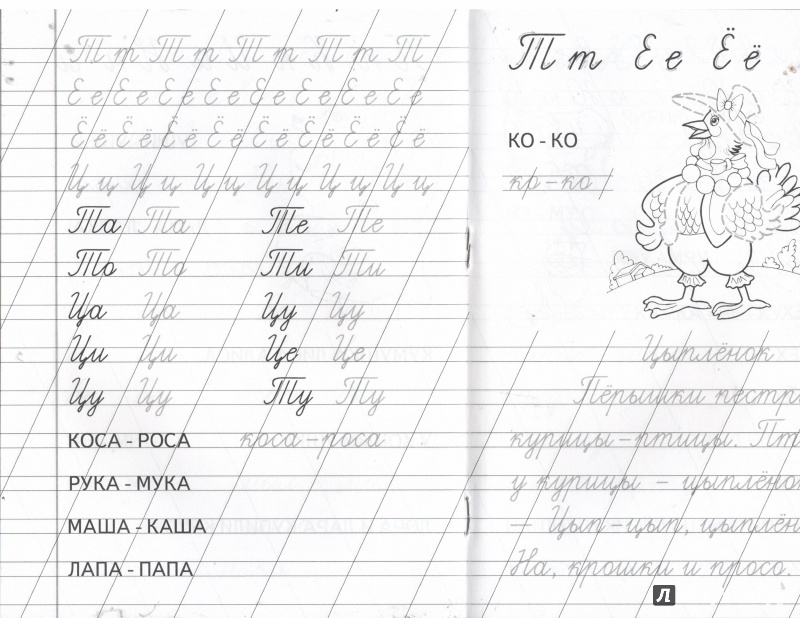 Т т Т т Т т Т т Т
Е е Е е Е е Е е Е е Е е Е е Е е
Ё ё Ё ё Ё ё Ё ё Ё ё Ё ё Ё ё Ё ё
Ц ц Ц ц Ц ц Ц ц Ц ц Ц ц
Та Та Те Те
То То Ти Ти
Ца Ца Цу Цу
Ци Ци Це Це
Цу Цу Ту Ту
КОСА - РОСА коса-роса
РУКА - МУКА
МАША - КАША
ЛАПА - ПАПА
Т т Е е Ё ё
КО - КО
ко-ко
Цыплёнок
Пёрышки
курицы-птицы.
у курицы -
— Цып-цып,
На, крошки и просо.
Л